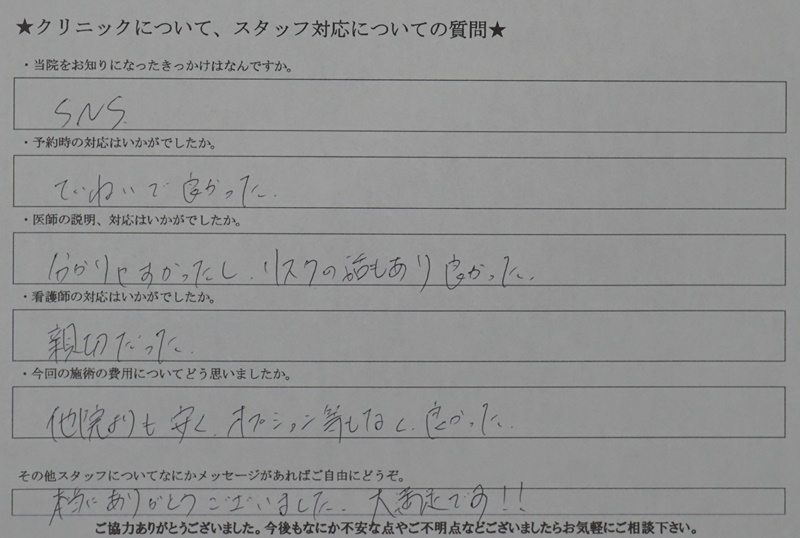 ★クリニックについて、スタッフ対応についての質問★
・当院をお知りになったきっかけはなんですか。
SNS.
・予約時の対応はいかがでしたか。
ていねいで良かった.
・医師の説明、対応はいかがでしたか。
分かりやすかったし、リスクの話もあり良かった.
・看護師の対応はいかがでしたか。
親切だった.
・今回の施術の費用についてどう思いましたか。
他院よりも安く、オプション等もなく、良かった.
その他スタッフについてなにかメッセージがあればご自由にどうぞ。
本当にありがとうございました. 大満足です!!
ご協力ありがとうございました。今後もなにか不安な点やご不明点などございましたらお気軽にご相談下さい。